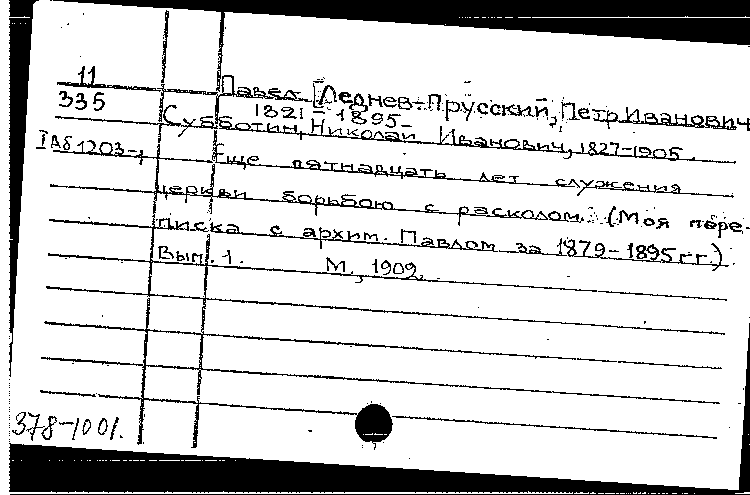 11
Павел [Леднев-Прусский, Петр Иванович
335
1821-1895-
Субботин, Николай Иванович, 1827-1905.
Еще пятнадцать лет служения
церкви борьбою с расколом. (Моя пере-
писка с архим. Павлом за 1879-1895 гг.)
Вып. 1. М., 1902.
378-1001.